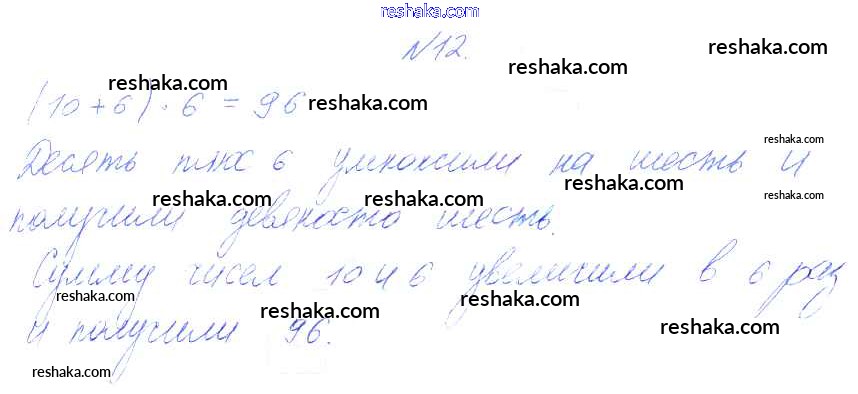 reshaka.com
№12.
reshaka.com
reshaka.com
reshaka.com
(10+6)·6=96
reshaka.com
reshaka.com
Десять плюс 6 умножили на шесть и
reshaka.com
reshaka.com
reshaka.com
reshaka.com
получили девяносто шесть.
Сумму чисел 10 и 6 увеличили в 6 раз
reshaka.com
reshaka.com
reshaka.com
reshaka.com
и получили 96.
reshaka.com